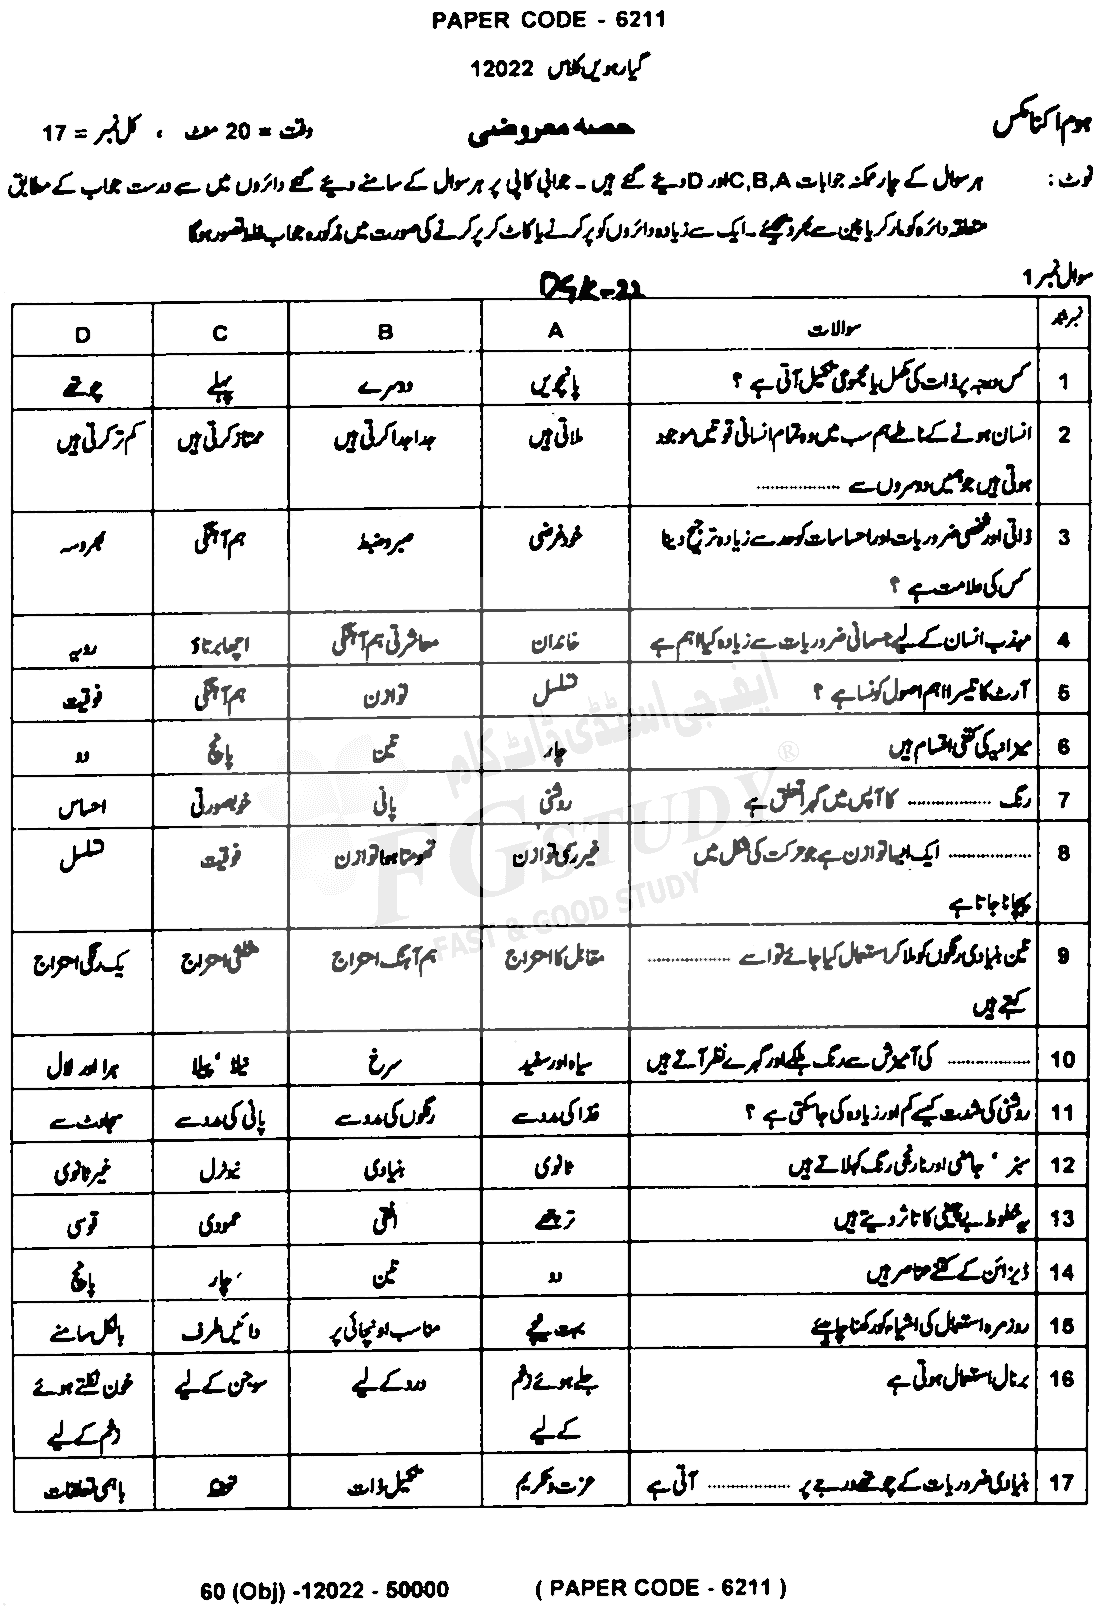 PAPER CODE - 6211
گیارہویں کلاس 12022
ہوم اکنامکس
حصہ معروضی
وقت = 20 منٹ ، کل نمبر = 17
نوٹ : ہر سوال کے چار ممکنہ جوابات C,B,A اور D دیئے گئے ہیں ۔ جوابی کاپی پر ہر سوال کے سامنے دیئے گئے دائروں میں سے درست جواب کے مطابق
متعلقہ دائرہ کو مارکر یا پین سے بھر دیجیئے ۔ ایک سے زیادہ دائروں کو پر کرنے یا کاٹ کر پر کرنے کی صورت میں مذکورہ جواب غلط تصور ہوگا
سوال نمبر 1
DGK-22
نمبر شمار سوالات A B C D
1 کس درجہ پر ذات کی مکمل یا مجموعی تکمیل آتی ہے ؟ پانچویں دوسرے پہلے چوتھے
2 انسان ہونے کے ناطے ہم سب میں وہ تمام انسانی قوتیں موجود ملاتی ہیں جدا جدا کرتی ہیں ممتاز کرتی ہیں کم تر کرتی ہیں
ہوتی ہیں جو ہمیں دوسروں سے ..................
3 ذاتی اور شخصی ضروریات اور احساسات کو حد سے زیادہ ترجیح دینا خود غرضی صبر و ضبط ہم آہنگی بھروسہ
کس کی علامت ہے ؟
4 مہذب انسان کے لیے جسمانی ضروریات سے زیادہ کیا اہم ہے خاندان معاشرتی ہم آہنگی اچھا برتاؤ رویہ
5 آرٹ کا تیسرا اہم اصول کونسا ہے ؟ تسلسل توازن ہم آہنگی فوقیت
6 میزانیہ کی کتنی اقسام ہیں چار تین پانچ دو
7 رنگ .................. کا آپس میں گہرا تعلق ہے روشنی پانی خوبصورتی احساس
8 .................. ایک ایسا توازن ہے جو حرکت کی شکل میں غیر رسمی توازن گھومتا ہوا توازن فوقیت تسلسل
پہچانا جاتا ہے
9 تین بنیادی رنگوں کو ملا کر استعمال کیا جائے تو اسے .................. مقابل کا امتزاج ہم آہنگ امتزاج مثلثی امتزاج یک رنگی امتزاج
کہتے ہیں
10 .................. کی آمیزش سے رنگ ہلکے اور گہرے نظر آتے ہیں سیاہ اور سفید سرخ نیلا ' پیلا ہرا اور لال
11 روشنی کی شدت کیسے کم اور زیادہ کی جاسکتی ہے ؟ غذا کی مدد سے رنگوں کی مدد سے پانی کی مدد سے سجاوٹ سے
12 سبز ' جامنی اور نارنجی رنگ کہلاتے ہیں ثانوی بنیادی نیوٹرل غیر ثانوی
13 یہ خطوط بے چینی کا تاثر دیتے ہیں ترچھے افقی عمودی قوسی
14 ڈیزائن کے کتنے عناصر ہیں دو تین چار پانچ
15 روزمرہ استعمال کی اشیاء کو رکھنا چاہیئے بہت نیچے مناسب اونچائی پر دائیں طرف بالکل سامنے
16 برنال استعمال ہوتی ہے جلے ہوئے زخم درد کے لیے سوجن کے لیے خون نکلتے ہوئے
کے لیے زخم کے لیے
17 بنیادی ضروریات کے چوتھے درجے پر .................. آتی ہے عزت و تکریم تکمیل ذات تحفظ باہمی تعلقات
ایف جی اسٹڈی ڈاٹ کام
FG STUDY ®
FAST & GOOD STUDY
60 (Obj) -12022 - 50000 ( PAPER CODE - 6211 )